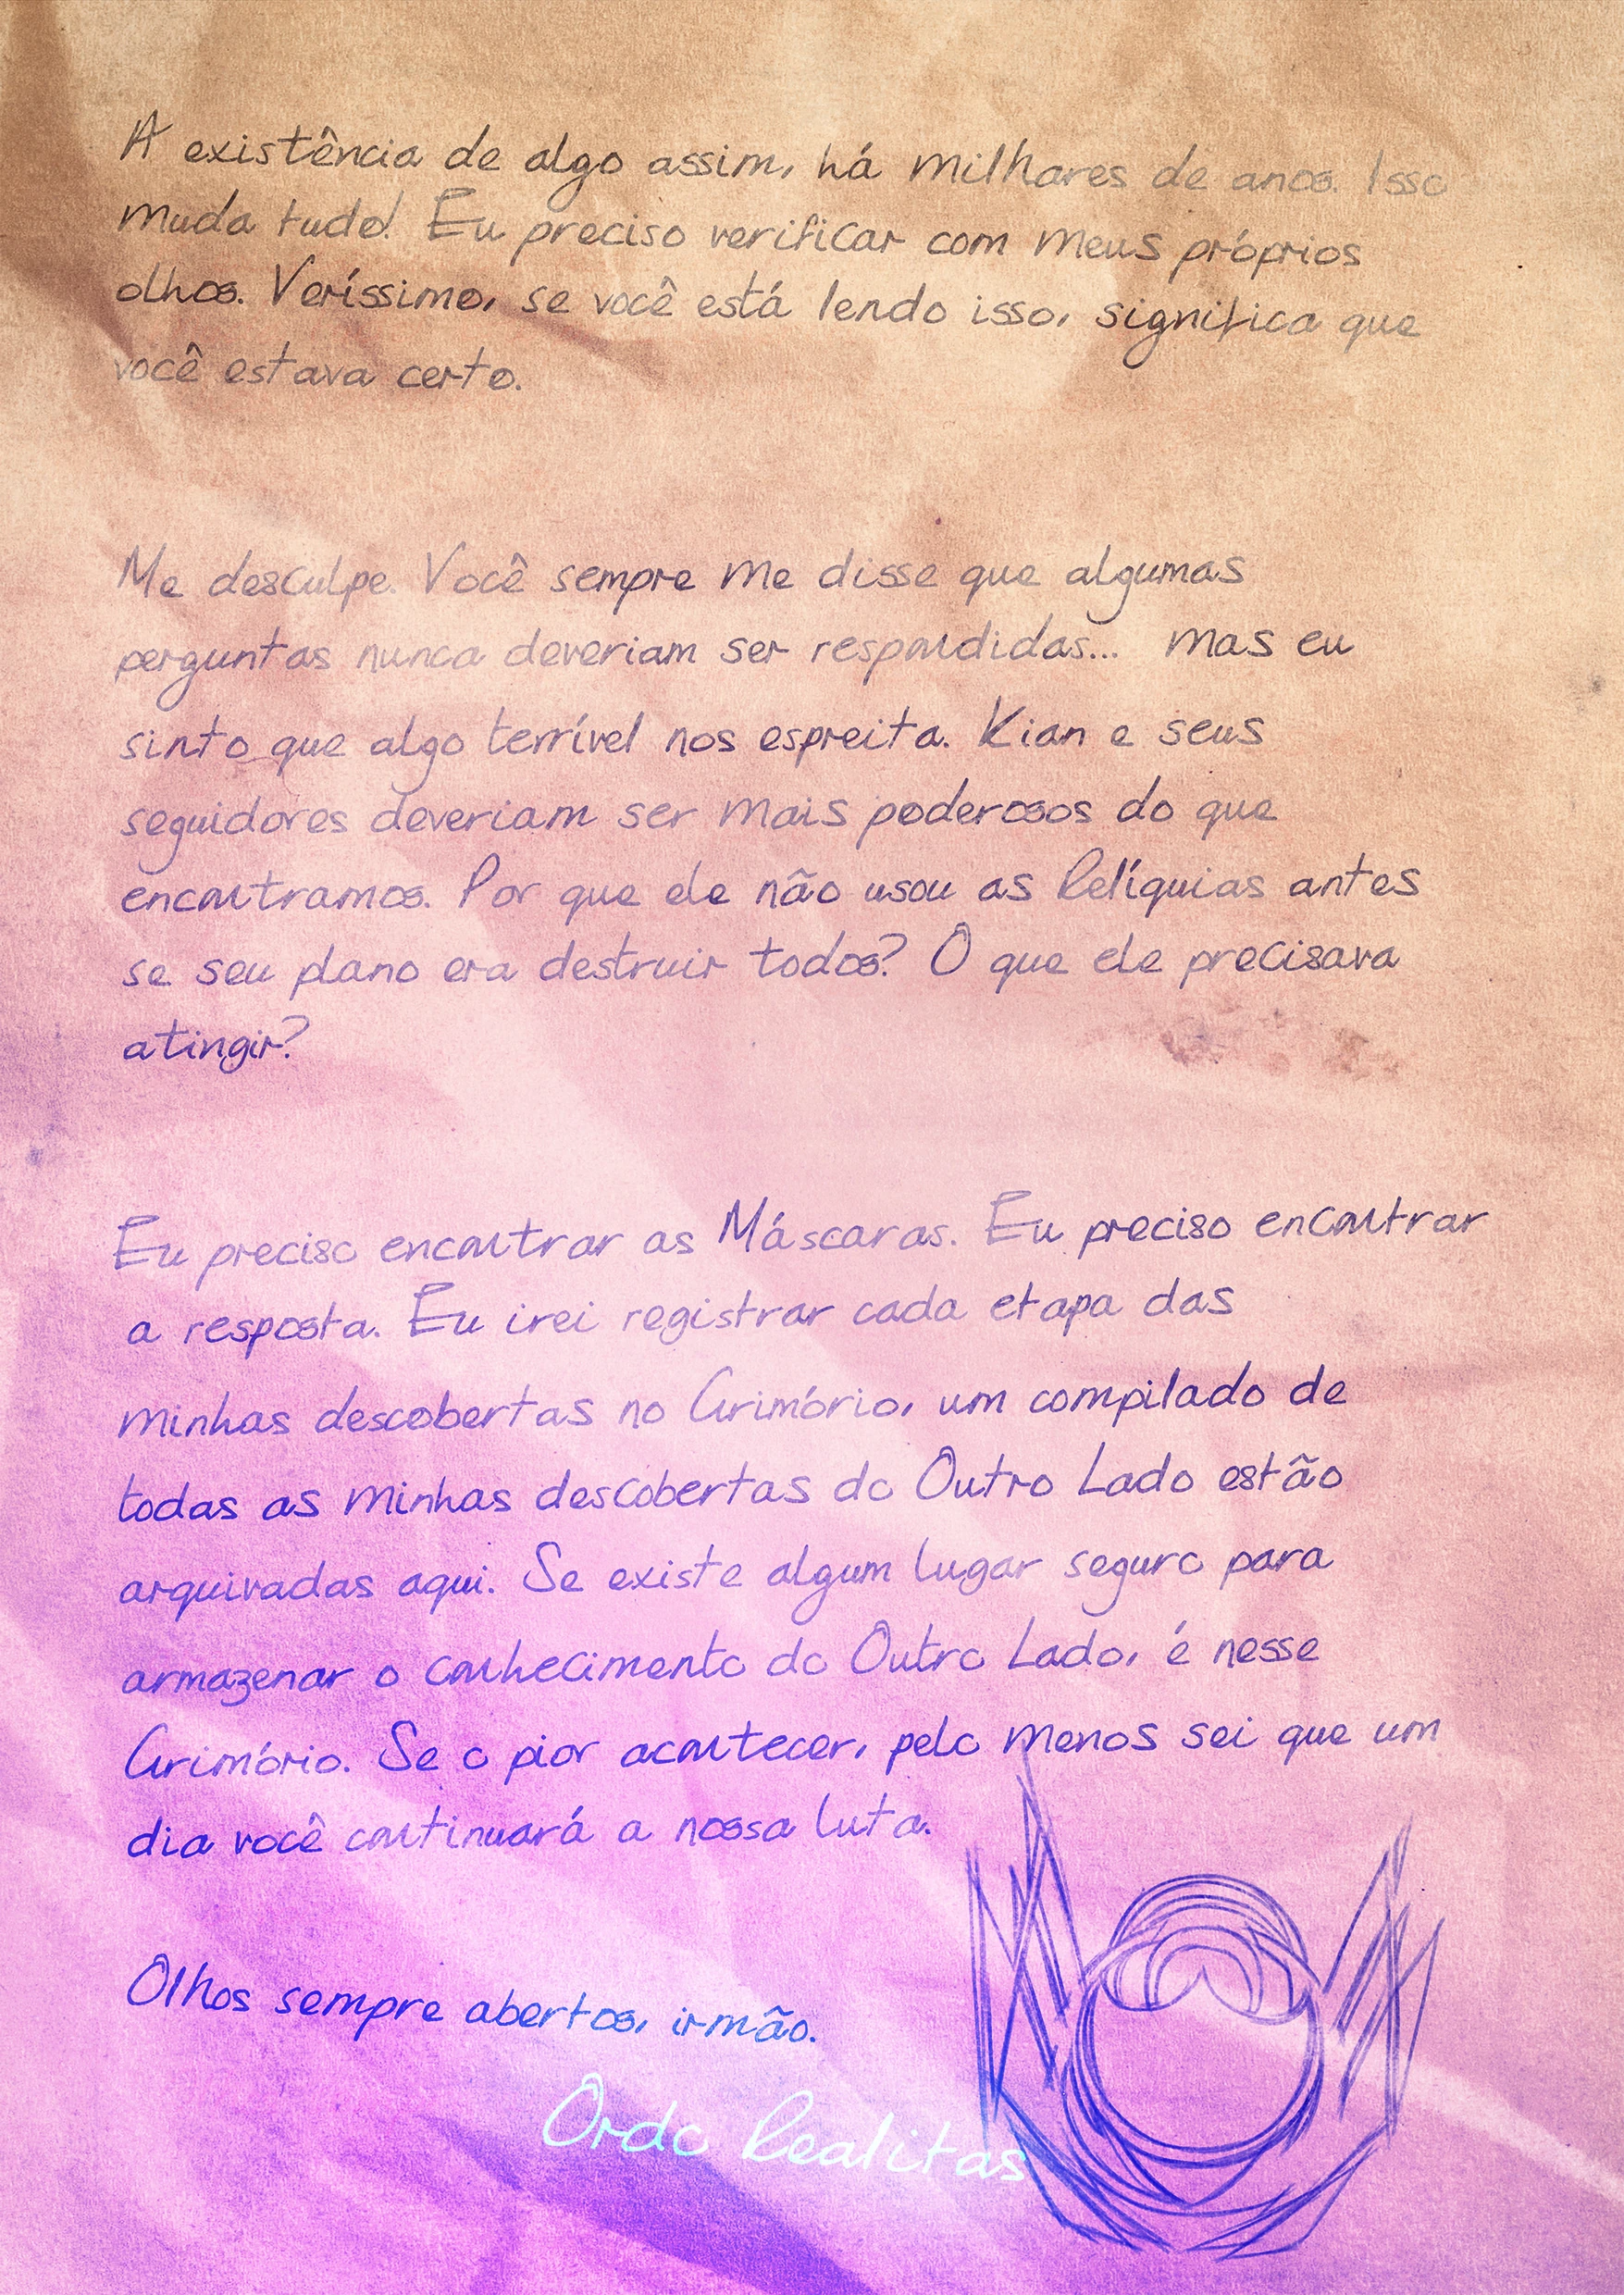 A existência de algo assim, há milhares de anos. Isso
muda tudo! Eu preciso verificar com meus próprios
olhos. Veríssimo, se você está lendo isso, significa que
você estava certo.
Me desculpe. Você sempre me disse que algumas
perguntas nunca deveriam ser respondidas... mas eu
sinto que algo terrível nos espreita. Kian e seus
seguidores deveriam ser mais poderosos do que
encontramos. Por que ele não usou as Relíquias antes
se seu plano era destruir todos? O que ele precisava
atingir?
Eu preciso encontrar as Máscaras. Eu preciso encontrar
a resposta. Eu irei registrar cada etapa das
minhas descobertas no Grimório, um compilado de
todas as minhas descobertas do Outro Lado estão
arquivadas aqui. Se existe algum lugar seguro para
armazenar o conhecimento do Outro Lado, é nesse
Grimório. Se o pior acontecer, pelo menos sei que um
dia você continuará a nossa luta.
Olhos sempre abertos, irmão.
Ordo Realitas